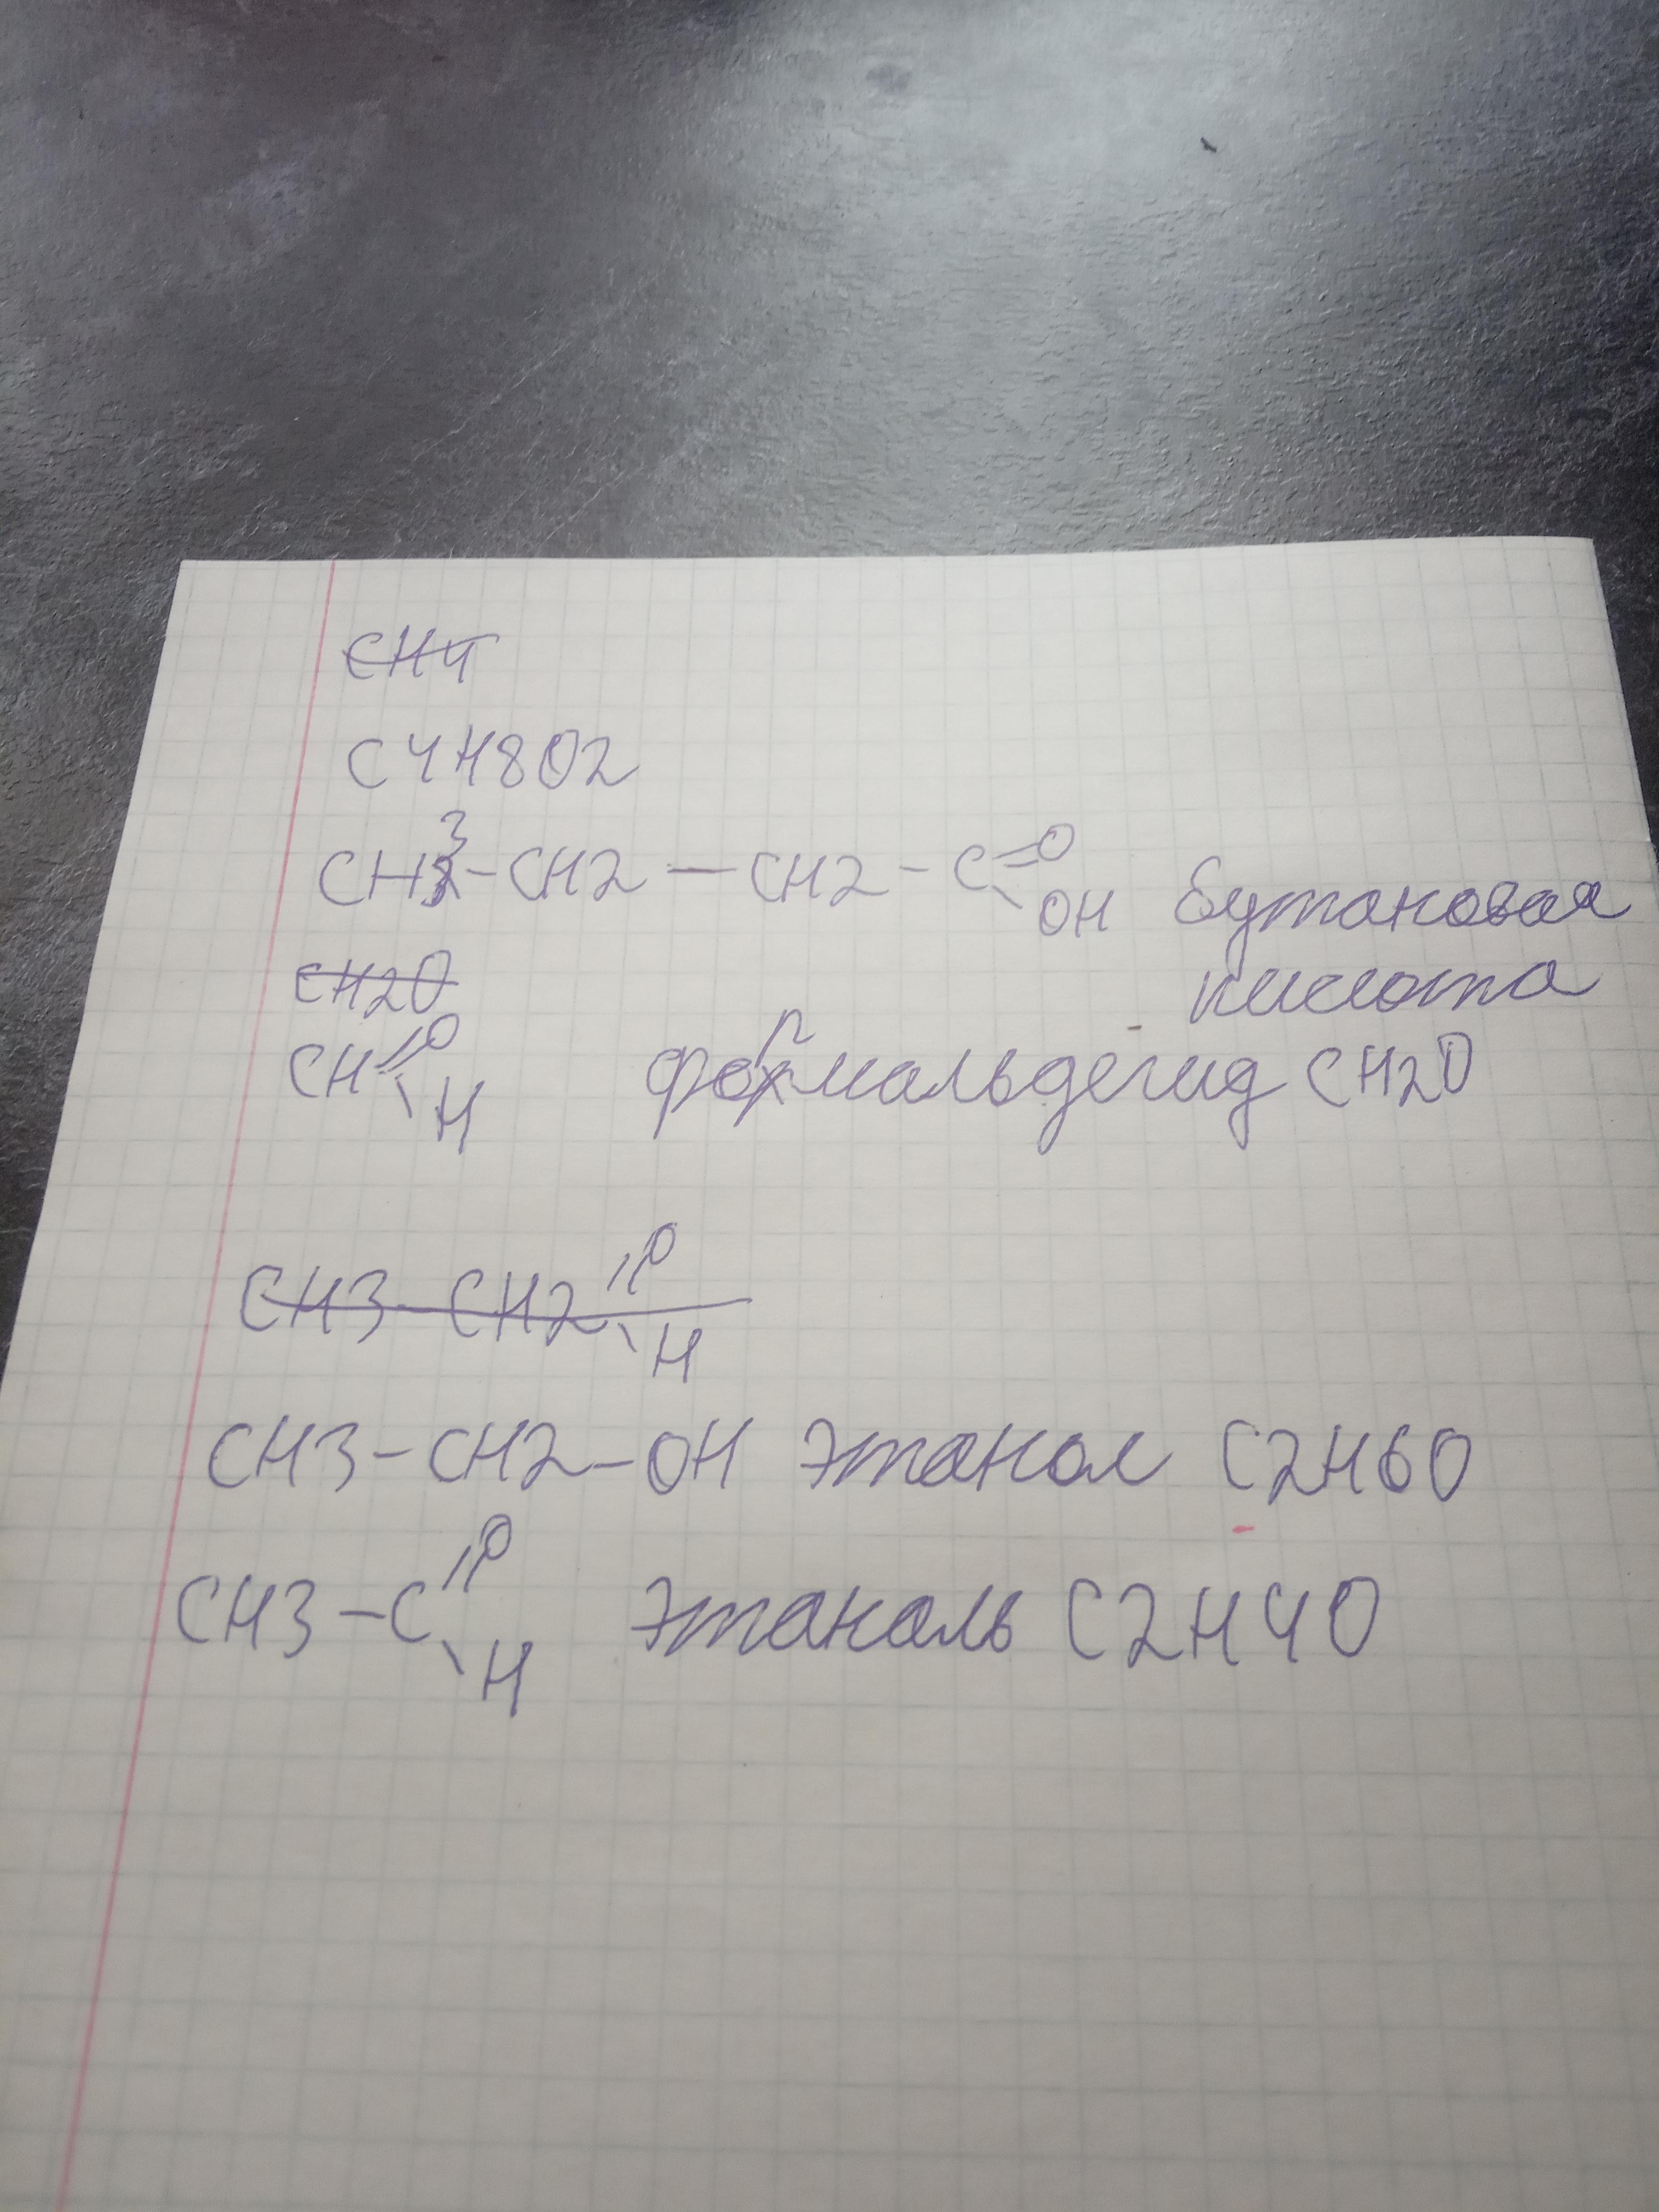 CH4
C4H8O2
CH3-CH2-CH2-C=O
OH Бутановая
кислота
CH2O
CH=O
H формальдегид CH2O
CH3-CH2=O
H
CH3-CH2-OH этанол C2H6O
CH3-C=O
H этаналь C2H4O